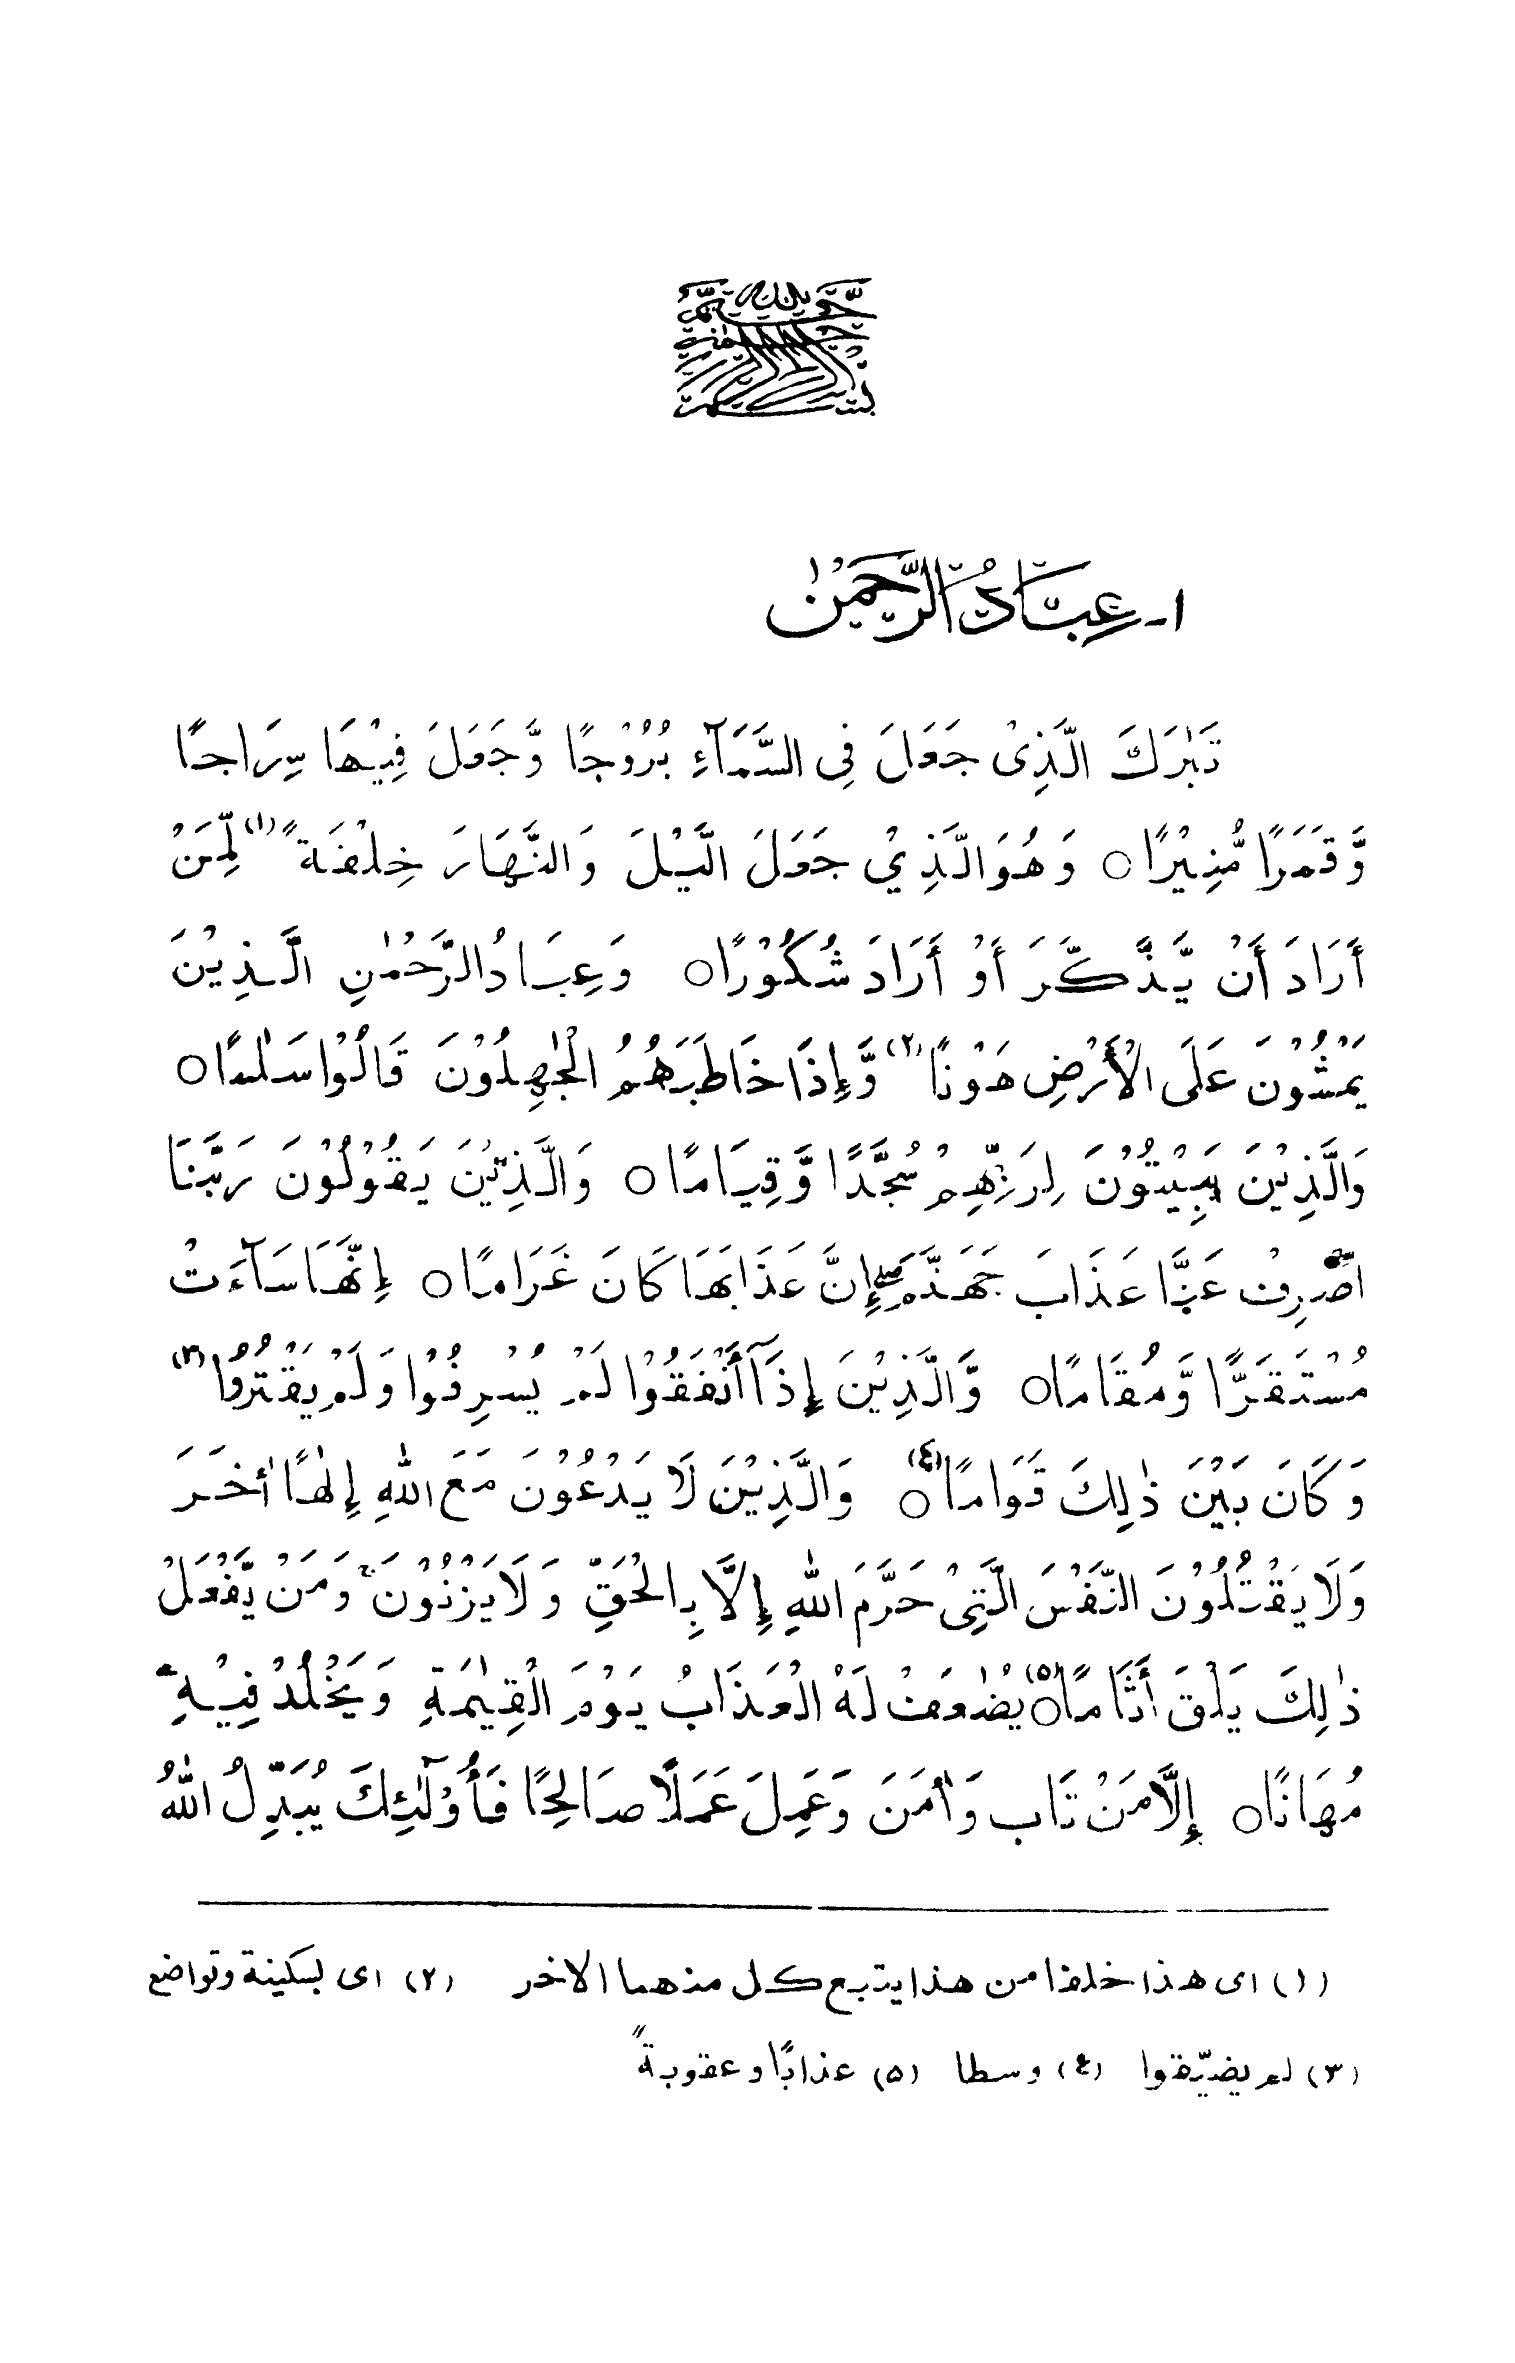 بِسْمِ اللهِ الرَّحْمٰنِ الرَّحِيْمِ
١- عِبَادُ الرَّحْمٰن
تَبٰرَكَ الَّذِىْ جَعَلَ فِى السَّمَآءِ بُرُوْجًا وَّجَعَلَ فِيْهَا سِرَاجًا
وَّقَمَرًا مُّنِيْرًا○ وَهُوَ الَّذِيْ جَعَلَ الَّيْلَ وَالنَّهَارَ خِلْفَةً (١) لِّمَنْ
أَرَادَ أَنْ يَّذَّكَّرَ أَوْ أَرَادَ شُكُوْرًا○ وَعِبَادُ الرَّحْمٰنِ الَّذِيْنَ
يَمْشُوْنَ عَلَى الْأَرْضِ هَوْنًا (٢) وَّإِذَا خَاطَبَهُمُ الْجٰهِلُوْنَ قَالُوْا سَلٰمًا○
وَالَّذِيْنَ يَبِيْتُوْنَ لِرَبِّهِمْ سُجَّدًا وَّقِيَامًا○ وَالَّذِيْنَ يَقُوْلُوْنَ رَبَّنَا
اصْرِفْ عَنَّا عَذَابَ جَهَنَّمَ ۖ إِنَّ عَذَابَهَا كَانَ غَرَامًا○ إِنَّهَا سَآءَتْ
مُسْتَقَرًّا وَّمُقَامًا○ وَّالَّذِيْنَ إِذَآ أَنْفَقُوْا لَمْ يُسْرِفُوْا وَلَمْ يَقْتُرُوْا (٣)
وَكَانَ بَيْنَ ذٰلِكَ قَوَامًا (٤)○ وَالَّذِيْنَ لَا يَدْعُوْنَ مَعَ اللهِ إِلٰهًا أٰخَرَ
وَلَا يَقْتُلُوْنَ النَّفْسَ الَّتِىْ حَرَّمَ اللهُ إِلَّا بِالْحَقِّ وَلَا يَزْنُوْنَ ۚ وَمَنْ يَّفْعَلْ
ذٰلِكَ يَلْقَ أَثَامًا (٥)○ يُضٰعَفْ لَهُ الْعَذَابُ يَوْمَ الْقِيٰمَةِ وَيَخْلُدْ فِيْهِ
مُهَانًا○ إِلَّا مَنْ تَابَ وَأٰمَنَ وَعَمِلَ عَمَلًا صَالِحًا فَأُوْلٰٓئِكَ يُبَدِّلُ اللهُ
(١) اى هذا خلفا من هذا يتبع كل منهما الاخر (٢) اى بسكينة وتواضع
(٣) لم يضيّقوا (٤) وسطا (٥) عذابًا وعقوبةً